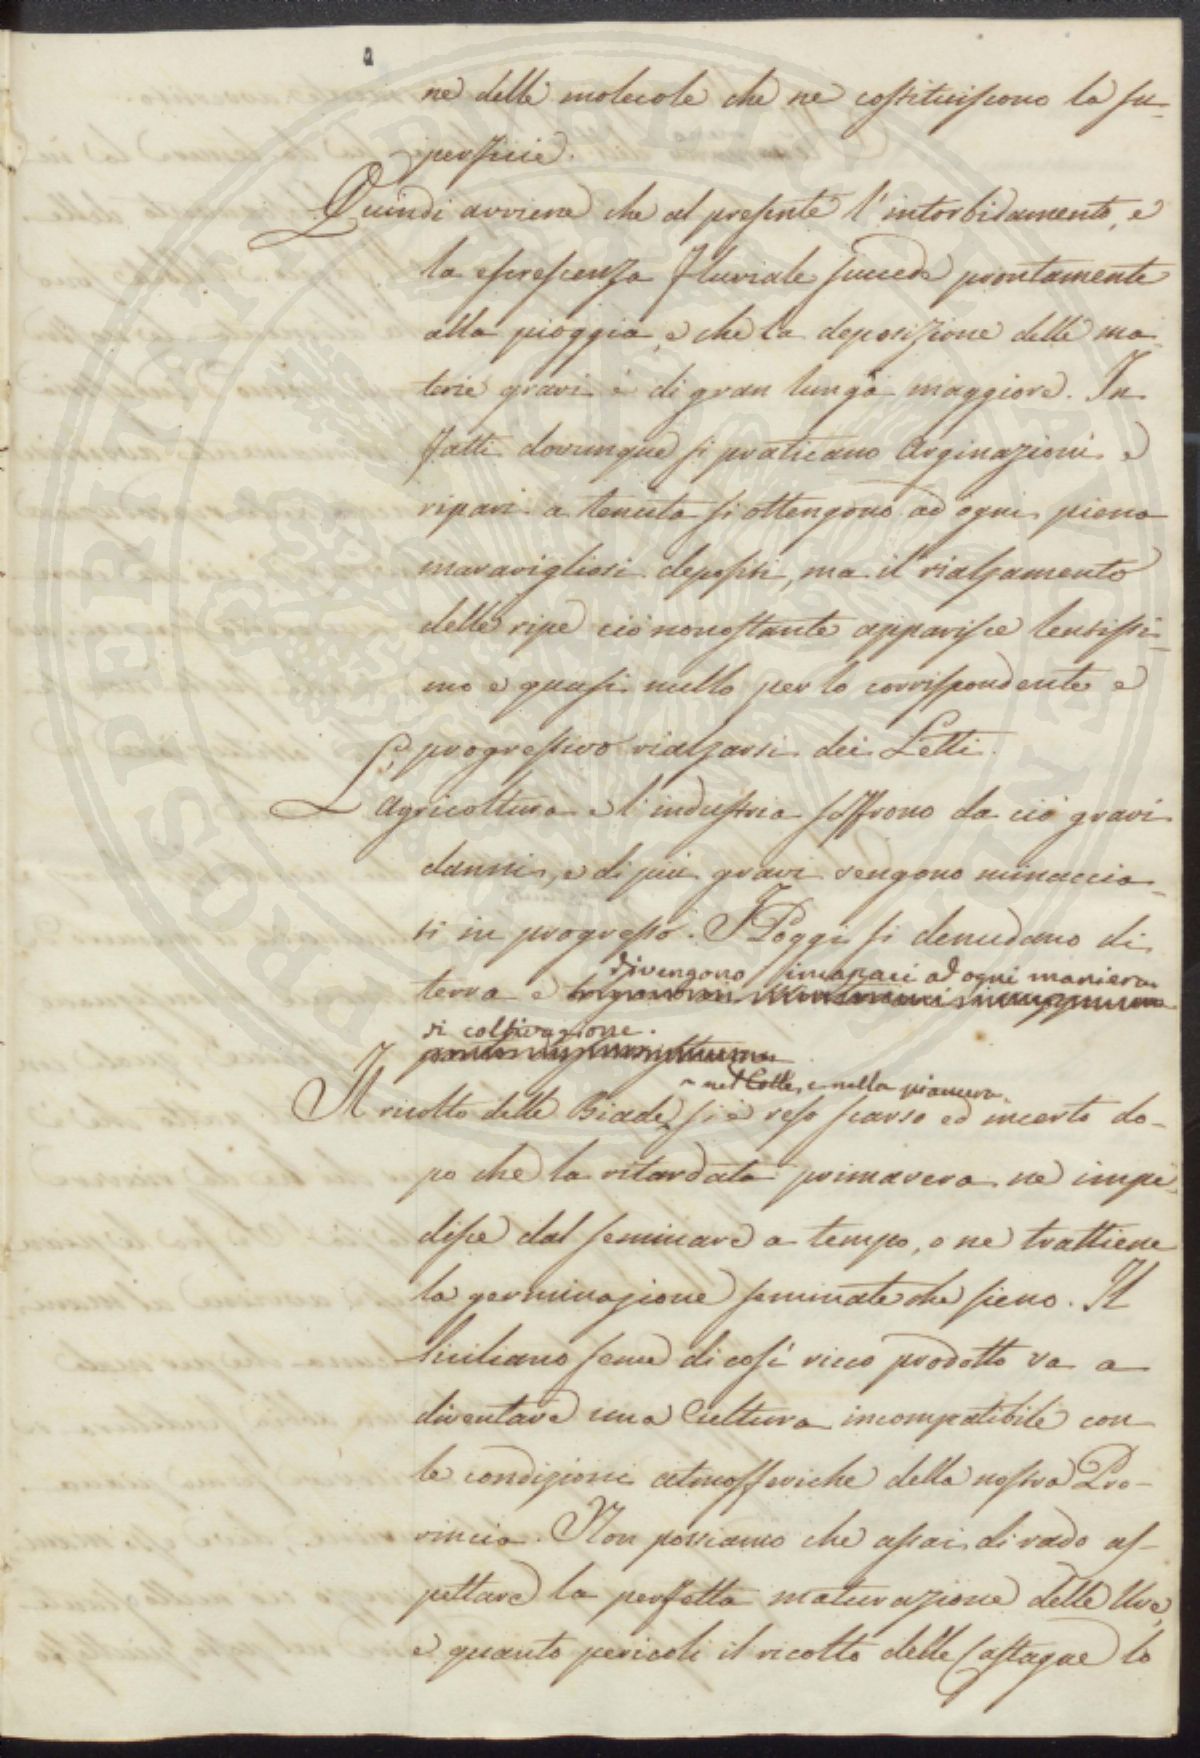 ne delle molecole che ne costituiscono la su-
perficie.
Quindi avviene che al presente l'intorbidamento, e
la escrescenza fluviale succede prontamente
alla pioggia, e che la deposizione delle ma-
terie gravi è di gran lunga maggiore. In
fatti dovunque si praticano Arginazioni e
ripari a tenuta si ottengono ad ogni piena
maravigliosi depositi, ma il rialzamento
delle ripe ciò nonostante apparisce lentissi-
mo e quasi nullo per lo corrispondente e
progressivo rialzarsi dei Letti.
L'Agricoltura e l'industria soffrono da ciò gravi
danni, e di più gravi vengono minaccia-
ti in progresso. I Poggi si denudano di
divengono incapaci ad ogni maniera
terra e
di coltivazione.
nel Colle, e nella pianura.
Il ricolto delle Biade si è reso scarso ed incerto do-
po che la ritardata primavera ne impe-
disce dal seminare a tempo, o ne trattiene
la germinazione seminate che sieno. Il
Siciliano seme di così ricco prodotto va a
diventare una Cultura incompatibile con
le condizioni atmosferiche della nostra Pro-
vincia. Non possiamo che assai di rado as-
pettare la perfetta maturazione delle Uve,
e quanto pericoli il ricolto delle Castagne lo
PROSPERITATI PUBLICAE